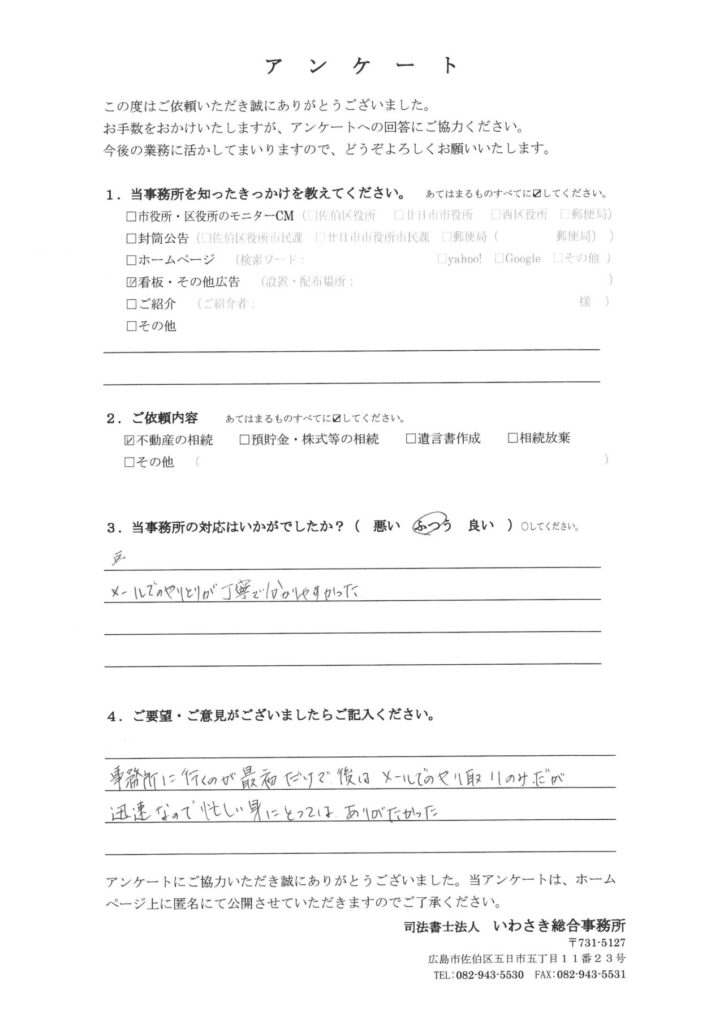 アンケート
この度はご依頼いただき誠にありがとうございました。
お手数をおかけいたしますが、アンケートへの回答にご協力ください。
今後の業務に活かしてまいりますので、どうぞよろしくお願いいたします。
１．当事務所を知ったきっかけを教えてください。 あてはまるものすべてに☑してください。
□市役所・区役所のモニターCM（□佐伯区役所 □廿日市市役所 □西区役所 □郵便局）
□封筒公告（□佐伯区役所市民課 □廿日市市役所市民課 □郵便局（ 郵便局））
□ホームページ （検索ワード： □yahoo! □Google □その他）
☑看板・その他広告 （設置・配布場所： ）
□ご紹介 （ご紹介者： 様 ）
□その他
２．ご依頼内容 あてはまるものすべてに☑してください。
☑不動産の相続 □預貯金・株式等の相続 □遺言書作成 □相続放棄
□その他 （ ）
３．当事務所の対応はいかがでしたか？（ 悪い ふつう 良い ）○してください。
メールでのやりとりが丁寧で分かりやすかった
４．ご要望・ご意見がございましたらご記入ください。
事務所に行くのが最初だけで後はメールでのやり取りのみだが
迅速なので忙しい身にとっては ありがたかった
アンケートにご協力いただき誠にありがとうございました。当アンケートは、ホーム
ページ上に匿名にて公開させていただきますのでご了承ください。
司法書士法人 いわさき総合事務所
〒731-5127
広島市佐伯区五日市五丁目１１番２３号
TEL:082-943-5530 FAX:082-943-5531